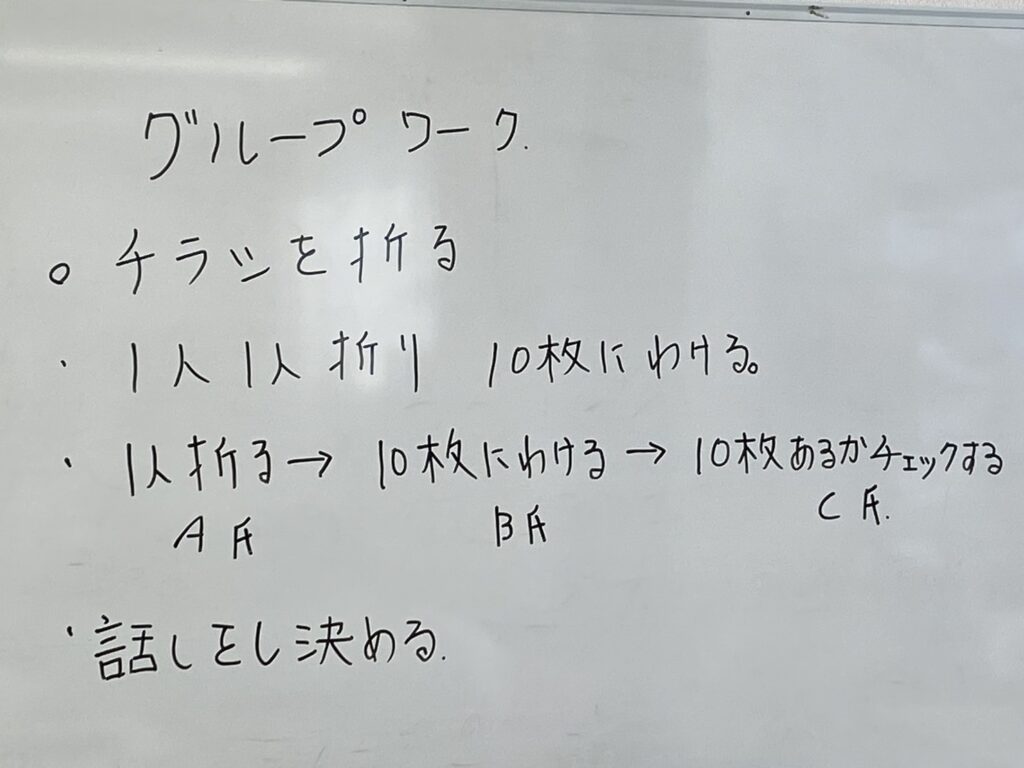 グループワーク.
○ チラシを折る
・ 1人1人折り 10枚にわける。
・ 1人折る→ 10枚にわける → 10枚あるかチェックする
A氏 B氏 C氏.
・話しをし決める.